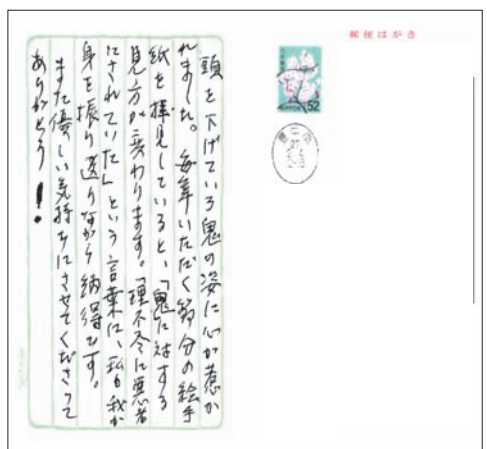 郵便はがき
NIPPON
52
頭を下げている鬼の姿に心が惹か
れました。毎年いただく節分の絵手
紙を拝見していると、「鬼に対する
見方が変わります。「理不尽に悪者
にされていた」という言葉に、私も我が
身を振り返りながら納得です。
また優しい気持ちにさせてくださって
ありがとう!